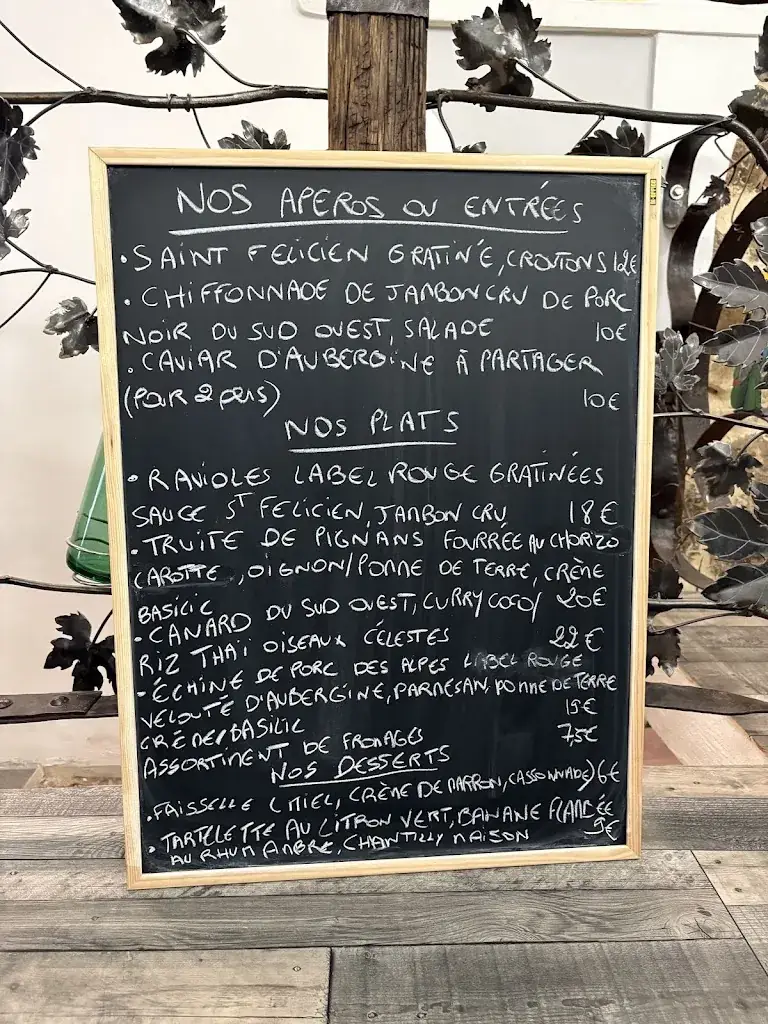 NOS APEROS OU ENTRÉES
• SAINT FELICIEN GRATINÉ, CROUTONS 12€
• CHIFFONNADE DE JAMBON CRU DE PORC
NOIR DU SUD OUEST, SALADE 10€
• CAVIAR D'AUBERGINE À PARTAGER
(POUR 2 PERS) 10€
NOS PLATS
• RAVIOLES LABEL ROUGE GRATINÉES
SAUCE ST FELICIEN, JAMBON CRU 18€
• TRUITE DE PIGNANS FOURRÉE AU CHORIZO
CAROTTE, OIGNON/POMME DE TERRE, CRÈME
BASILIC 20€
• CANARD DU SUD OUEST, CURRY COCO/
RIZ THAÏ OISEAUX CÉLESTES 22€
• ÉCHINE DE PORC DES ALPES LABEL ROUGE
VELOUTÉ D'AUBERGINE, PARMESAN, POMME DE TERRE
CRÈME/BASILIC 19€
ASSORTIMENT DE FROMAGES 7,5€
NOS DESSERTS
• FAISSELLE (MIEL, CRÈME DE MARRON, CASSONNADE) 6€
• TARTELETTE AU CITRON VERT, BANANE FLAMBÉE
AU RHUM AMBRE, CHANTILLY MAISON 9€